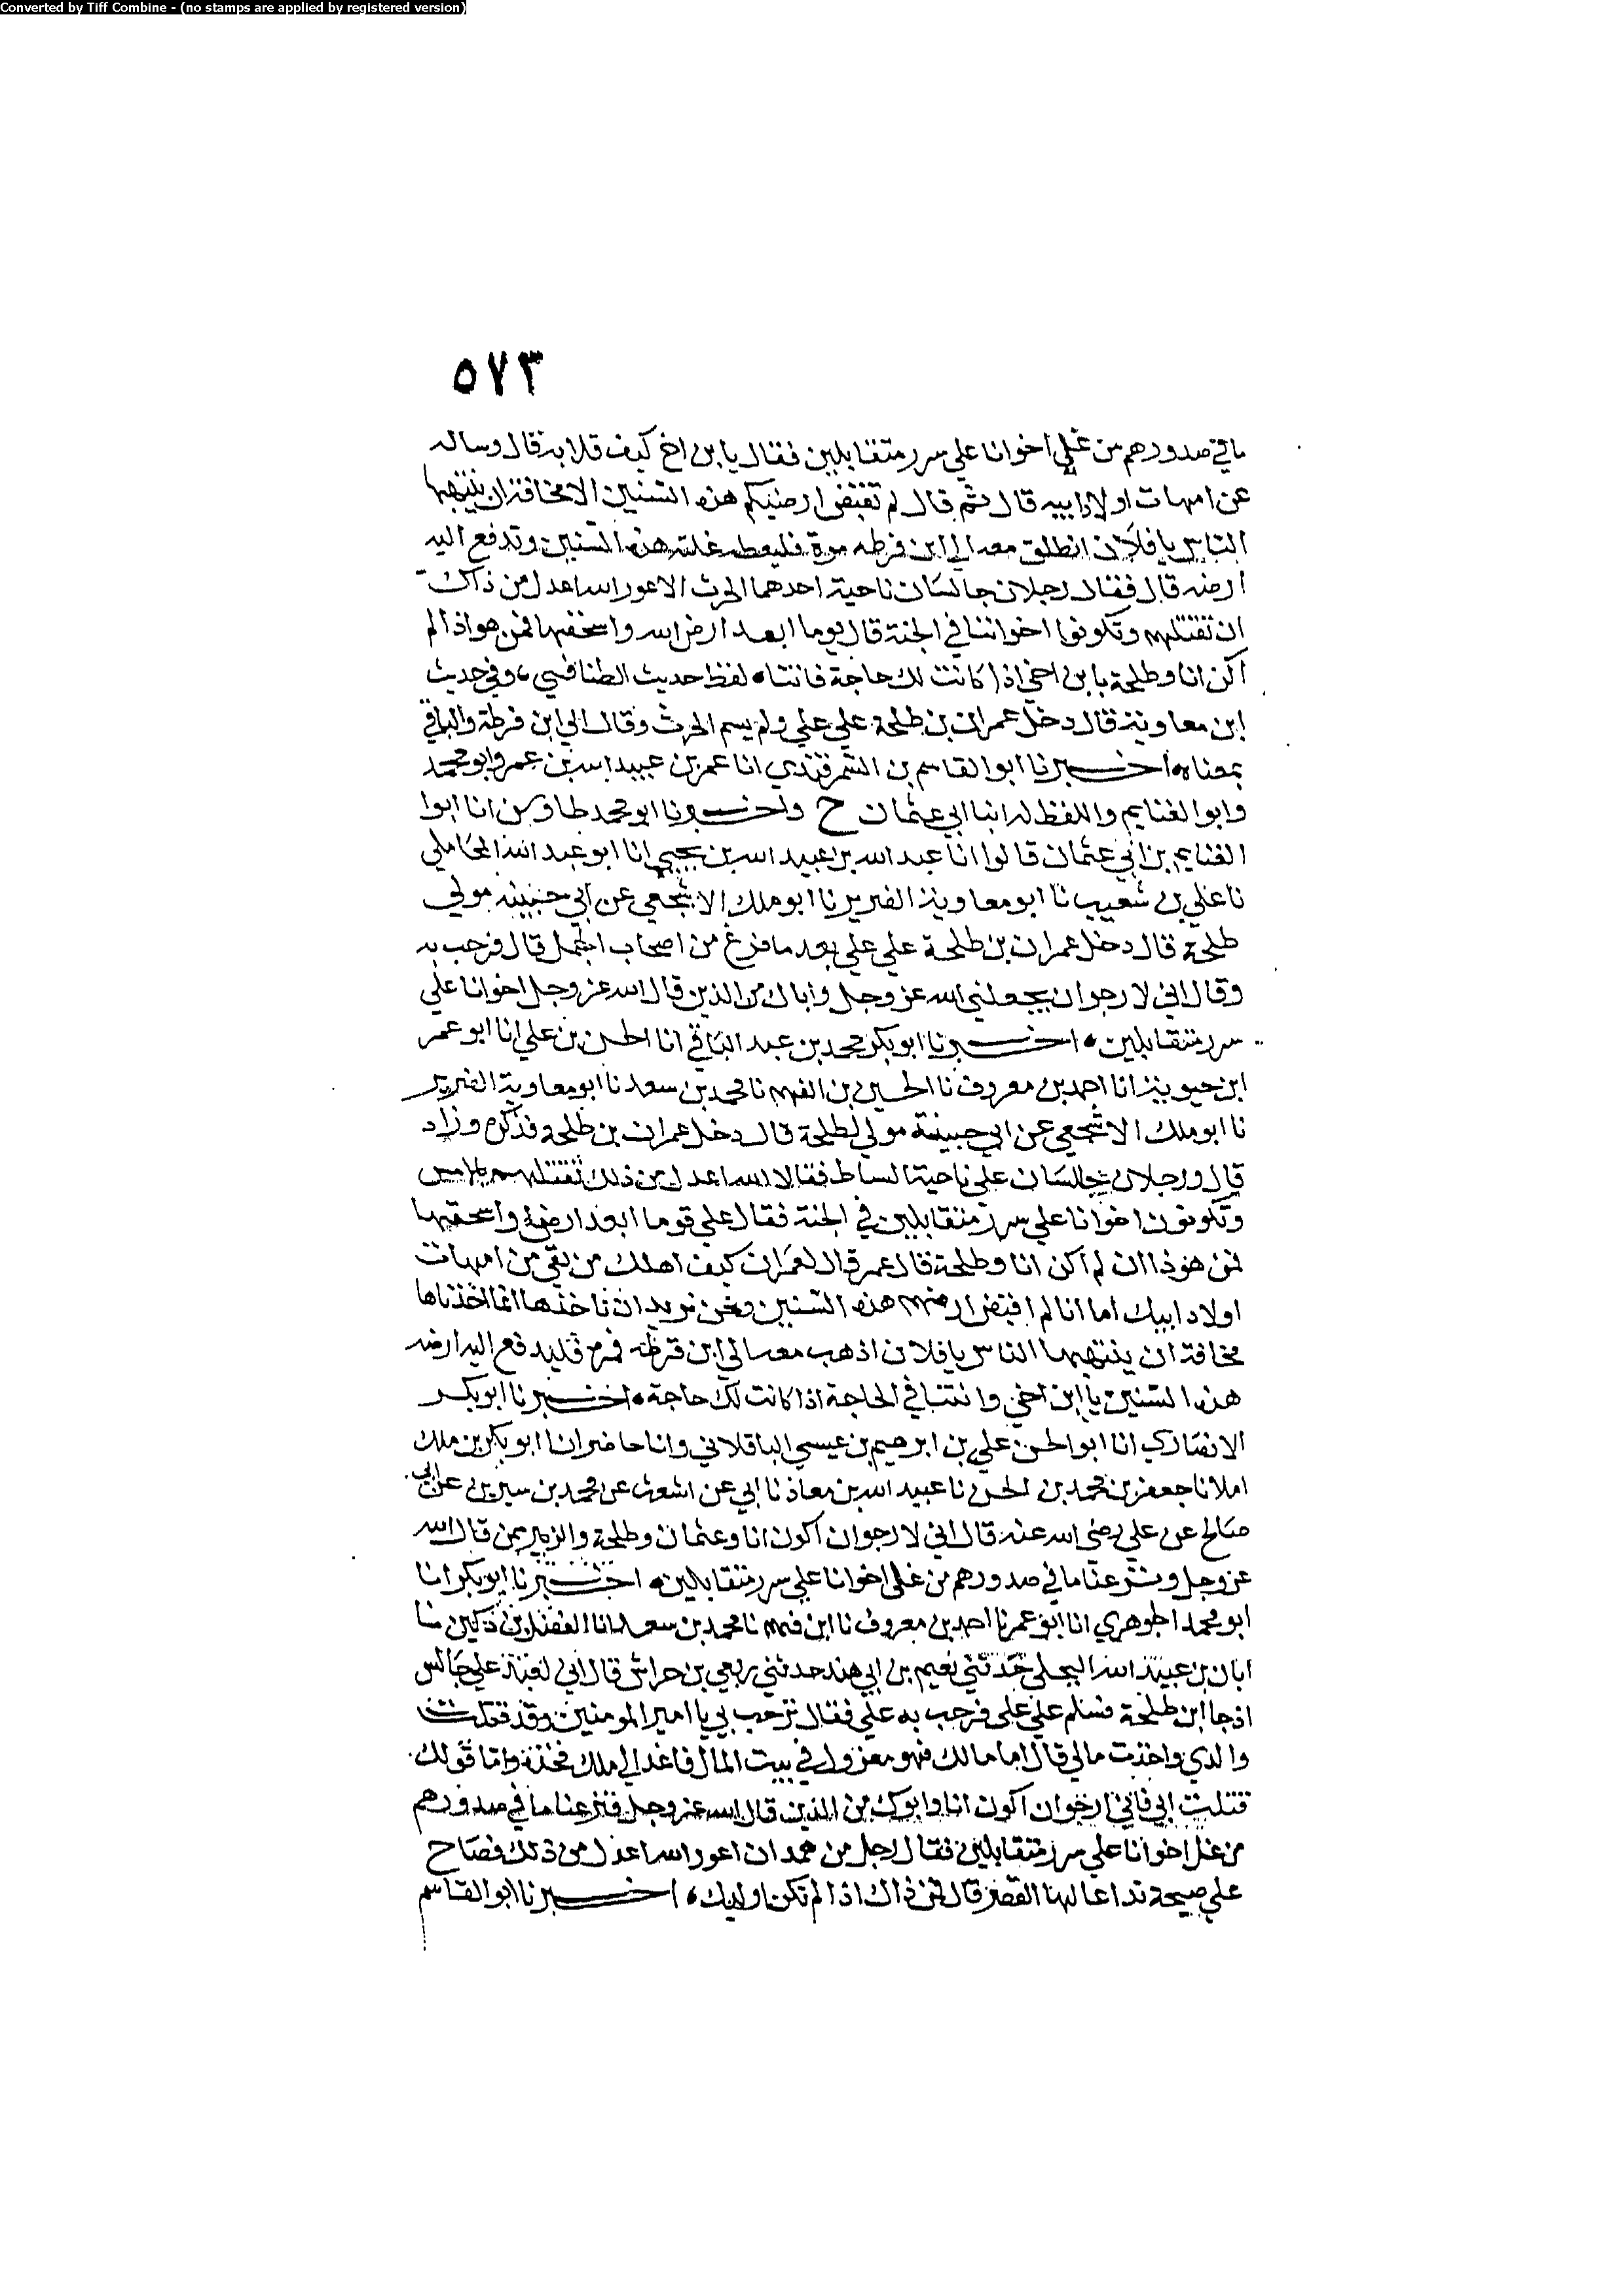 Converted by Tiff Combine - (no stamps are applied by registered version)
٥٧٣
ما في صدورهم من غل اخوانا على سرر متقابلين فقال يا بن اخ كيف فلانه قال وساله
عن امهات اولاد ابيه قال ثم قال لم نقبض ارضيكم هذه السنين الا مخافة ان ينتهبها
الناس يا فلان انطلق معه الى ابن قرظه مرة فليعطه غلته هذه السنين وتدفع اليه
ارضه قال فقال رجلان جالسان ناحية احدهما الحرث الاعور الله اعدل من ذاك
ان تقتلهم وتكونوا اخواننا في الجنة قال قوما ابعد ارض الله واسحقها فمن هو اذا لم
اكن انا وطلحة يا بن اخي اذا كانت لك حاجة فاتنا ه لفظ حديث الطنافسي، وفي حديث
ابن معاوية قال دخل عمران بن طلحة على علي ولم يسم الحرث وقال الى ابن قرظة والباقي
بمعناه اخبرنا ابو القاسم بن السمرقندي انا عمر بن عبيد الله بن عمر وابو محمد
وابو الغنايم واللفظ له ابنا ابي عثمان ح واخبرنا ابو محمد طاوس انا ابوا
الغنايم بن ابي عثمان قالوا انا عبد الله بن عبيد الله بن يحيى انا ابو عبد الله المحاملي
نا علي بن شعيب نا ابو معاوية الضرير نا ابو ملك الاشجعي عن ابي حبيبة مولى
طلحة قال دخل عمران بن طلحة على علي بعد ما فرغ من اصحاب الجمل قال فرحب به
وقال اني لارجوان يجعلني الله عز وجل واباك من الذين قال الله عز وجل اخوانا على
سرر متقابلين ه اخبرنا ابو بكر محمد بن عبد الباقي انا الحسن بن علي انا ابو عمر
ابن حيوية انا احمد بن معروف نا الحسين بن الفهم نا محمد بن سعد نا ابو معاوية الضرير
نا ابو ملك الاشجعي عن ابي حبيبة مولى لطلحة قال دخل عمران بن طلحة فذكره وزاد
قال ورجلان جالسان على ناحية البساط فقالا الله اعدل من ذلك تقتلهم بالامس
وتكونون اخوانا على سرر متقابلين في الجنة فقال علي قوما ابعد ارض واسحقها
فمن هو ذا ان لم اكن انا وطلحة قال عمر قال لعمران كيف اهلك من بقي من امهات
اولاد ابيك اما انا لم اقبض ارضهم هذه السنين ونحن نريد ان ناخذها انما اخذناها
مخافة ان ينتهبها الناس يا فلان اذهب معه الى ابن قرظه فمره فليدفع اليه ارضه
هذه السنين يا ابن اخي واتنا في الحاجة اذا كانت لك حاجة ه اخبرنا ابو بكر
الانصاري انا ابو الحسن علي بن ابرهيم بن عيسى الباقلاني وانا حاضر انا ابو بكر بن ملك
املا نا جعفر بن محمد بن الحسن نا عبيد الله بن معاذ نا ابي عن اشعث عن محمد بن سيرين عن ابي
صالح عن علي رضي الله عنه قال اني لارجوان اكون انا وعثمان وطلحة والزبير ممن قال الله
عز وجل ونزعنا ما في صدورهم من غل اخوانا على سرر متقابلين ه اخبرنا ابو بكر انا
ابو محمد الجوهري انا ابو عمر نا احمد بن معروف نا ابن فهم نا محمد بن سعد انا الفضل بن دكين نا
ابان بن عبد الله البجلي حدثني نعيم بن ابي هند حدثني ربعي بن حراش قال اني لعند علي جالس
اذ جا ابن طلحة فسلم على علي فرحب به علي فقال ترحب بي يا امير المومنين وقد قتلت
والدي واخذت مالي قال اما مالك فهو معزول في بيت المال فاغد الى مالك فخذه واما قولك
قتلت ابي فاني ارجوان اكون انا وابوك من الذين قال الله عز وجل فنزعنا ما في صدورهم
من غل اخوانا على سرر متقابلين فقال رجل من همدان اعور الله اعدل من ذلك فصاح
علي صيحة تداعا لها القصر قال فمن ذاك اذا لم نكن اوليك ه اخبرنا ابو القاسم